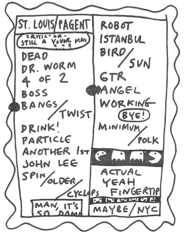 ST. LOUIS/PAGENT
STILL A YOUNG MAN
DEAD
DR. WORM
4 OF 2
BOSS
BANGS/
TWIST
DRINK!
PARTICLE
ANOTHER 1ST
JOHN LEE
SPIN/
OLDER/
CYCLOPS
MAN, IT'S
SO DAMN
ROBOT
ISTANBUL
BIRD/
SUN
GTR
ANGEL
WORKING
BYE!
MINIMUM/
POLK
ACTUAL
YEAH
FINGERTIP
MAYBE/NYC